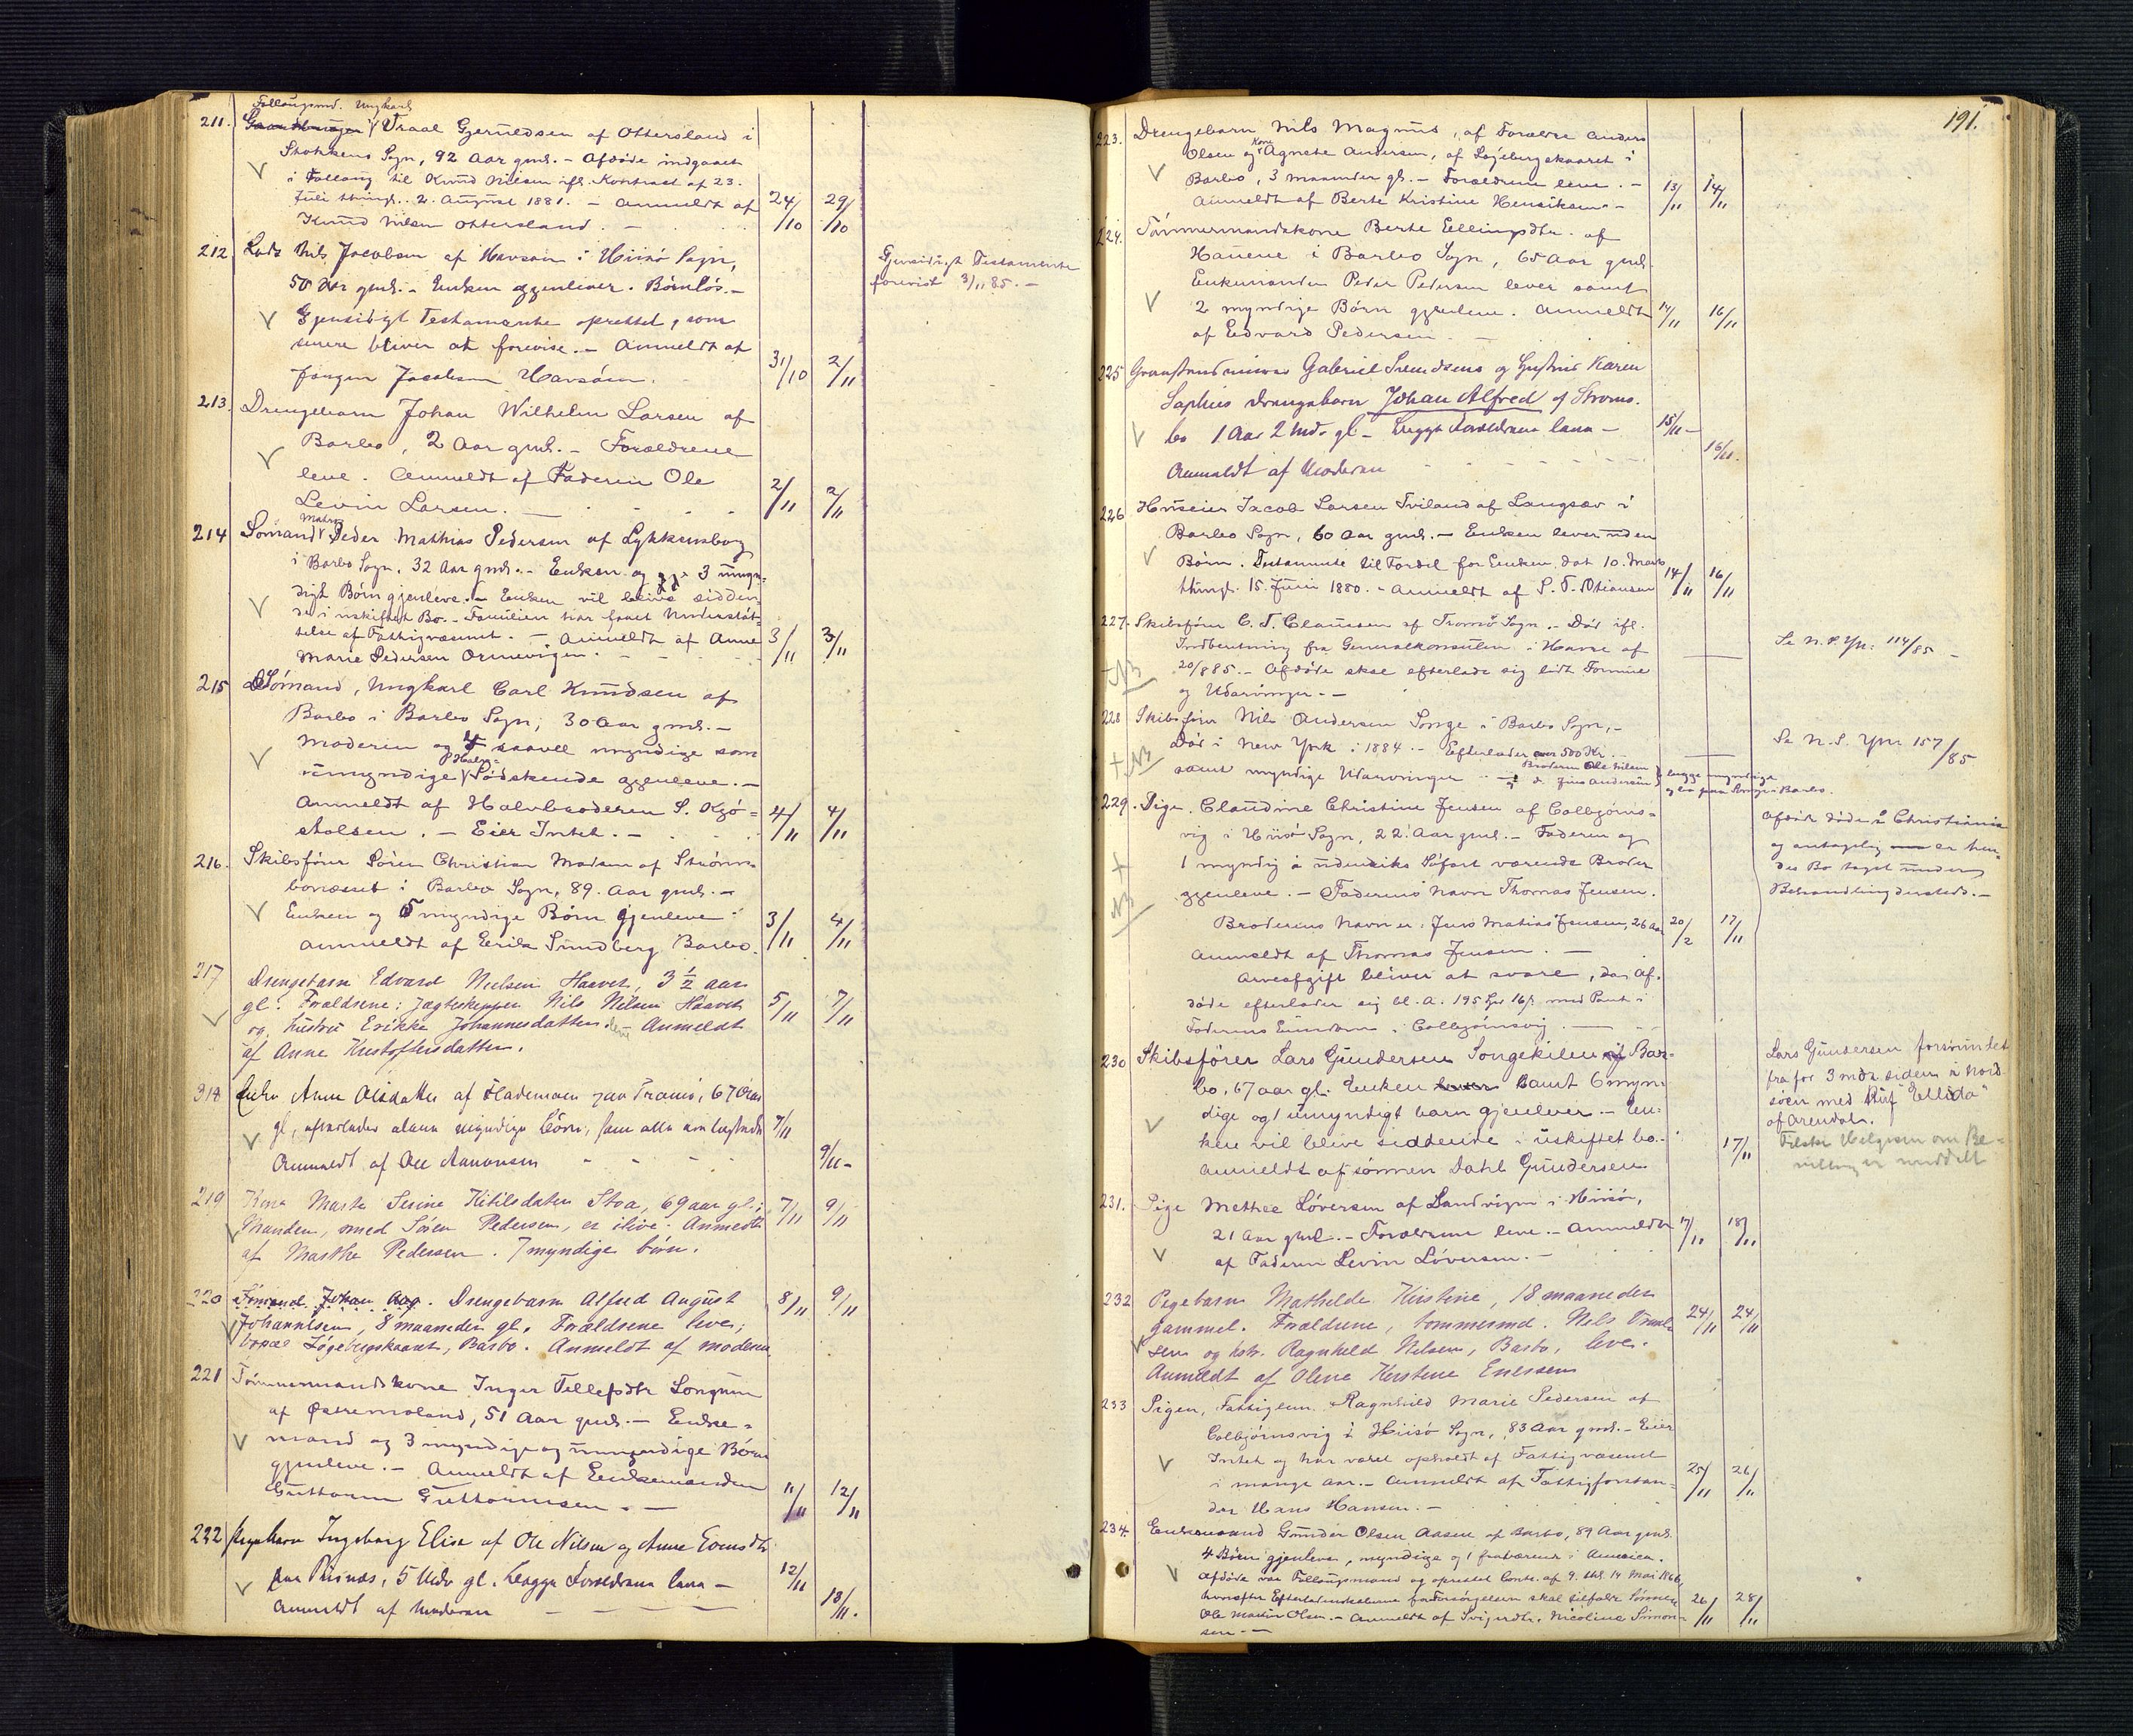 Follaugsmd. Ungkarl
211. Traal Gjeruldsen af Ottersland i
Stokkens Sogn, 92 Aar gml. - Afdøde indgaaet
i Follaug til Knud Nilsen ifl. Kontrakt af 23.
Juli thingl. 2. August 1881. - Anmeldt af
Knud Nilsen Ottersland. - 24/10 29/10
212. Lods Nils Jacobsen af Havsøin i Hiisø Sogn,
50 Aar gml. - Enken gjenlever. Børnløs. -
Gjensidigt Testamente
forevist 3/11 85. -
Gjensidigt Testamente oprettet, som
senere bliver at forevise. - Anmeldt af
Jørgen Jacobsen Havsøin. 31/10 2/11
213. Drengebarn Johan Wilhelm Larsen af
Barbo, 2 Aar gml. - Forældrene
leve. Anmeldt af Faderen Ole
Levin Larsen. - 2/11 2/11
214 Sømand Peder Mathias Pedersen af Lykkensborg
i Barbo Sogn, 32 Aar gml. - Enken og 3 umyn-
digt Børn gjenleve. - Enken vil blive sidden-
de i uskiftet Bo. - Familien har faaet Understøt-
telse af Fattigvæsenet. - Anmeldt af Anne
Marie Pedersen Ormevigen. 3/11 3/11
215 Sømand, Ungkarl Carl Knudsen af
Barbo i Barbo Sogn, 30 Aar gml. -
Moderen og 4 saavel myndige som
umyndige Halv- Sødskende gjenleve. -
Anmeldt af Halvbroderen S. Kjø-
stolsen. - Eier Intet. - 4/11 4/11
216. Skibsfører Søren Christian Madsen af Strøms-
bonæsset i Barbo Sogn, 89. Aar gml. -
Enken og 5 myndige Børn gjenleve
Anmeldt af Erik Sundberg Barbo. 3/11 4/11
217 Drengebarn Edvard Nielsen Haavet, 3 1/2 aar
gl. Forældrene: Jagteskipper Nils Nilsen Haavet
og hustru Erikke Johannesdatter. Anmeldt
af Anne Kristoffersdatter. 5/11 7/11
218 Enke Anne Olsdatter af Flademoen paa Tromø, 67 Aar
gl, efterlader alene myndige børn, som alle
Anmeldt af Ole Aanonsen - - - 7/11 9/11 -
219 Kone Marte Serine Kitilsdatter Stoa, 69 aar gl.;
Manden, smed Søren Pedersen, er ilive. Anmeldt
af Marthe Pedersen. 7 myndige børn. 7/11 9/11
220 Sømand. Johan Aug. Drengebarn Alfred August
Johannesen, 8 maaneder gl. Forældrene lever,
Løgebergskaaret, Barbo. Anmeldt af moderen 8/11 9/11
221 Tømmermandskone Inger Tellefsdtr Longum
af Østremoland, 51 Aar gml. - Enke-
mand og 3 myndige og umyndige Børn
gjenleve. - Anmeldt af Enkemanden
Guttorm Guttormsen. - 11/11 12/11
222 Pigebarn Ingeborg Elise af Ole Nilsen og Anne Evensdtr
paa Pusnæs, 5 Mdr gl. begge Forældrene leve -
Anmeldt af Moderen - - - 12/11 13/11.
191.
223. Drengebarn Nils Magnus, af Forældre Anders
Olsen og Kone Agnethe Andersen, af Løgebergskaaret i
Barbo, 3 Maaneder gl. - Forældrene leve. -
Anmeldt af Berte Kristine Henriksen. - 13/11 14/11
224. Tømmermandskone Berte Ellingsdtr. af
Hauene i Barbo Sogn, 65 Aar gml.
Enkemanden Peder Pedersen lever samt
2 myndige Børn gjenleve. Anmeldt
af Edvard Pedersen. - 14/11 16/11
225 Gabriel Svendsens og Hustrue Karen
Sophies Drengebarn Johan Alfred af Strøms-
bo 1 Aar 2 Md. gl - begge Forældrene leve -
Anmeldt af Moderen - - - 15/11 - 16/11.
226 Huseier Jacob Larsen Tviland af Langsæv i
Barbo Sogn, 60 Aar gml. - Enken lever uden
Børn. Testamente til Fordel for Enken, dat 10. Marts
thingl. 15. Juni 1880. - Anmeldt af S. T. Othiansen 14/11 16/11
227. Skibsfører C. T. Clausen af Tromø Sogn. - Død ifl.
Indberetning fra Generalkonsulen i Havre af
20/8 85. - Afdøde skal efterlade sig lidt Formue
og Udarvinger. -
NB
Se N. S. Pr: 114/85 -
228 Skibsfører Nils Andersen Songe i Barbo Sogn, -
Død i New York i 1884. - Efterlader over 500 Kr.
samt myndige Udarvinger - Broderen Ole Nilsen
og d. Jens Andersen begge myndige
og bor paa Songe i Barbo.
NB
Se N. S. Pr: 157/85
229. Pige Claudine Christine Jensen af Colbjørns-
vig i Hiisø Sogn, 22 Aar gml. - Faderen og
1 myndig i udenriks Søfart værende Broder
gjenleve. - Faderens Navn Thomas Jensen.
Broderens Navn er: Jens Mathias Jensen, 26 aar
Anmeldt af Thomas Jensen. - 20/2 17/11
NB
Afdøde døde i Christiania
og antagelig er hen-
des Bo taget under
Behandling dersteds. -
Arveafgift bliver at svare, da Af-
døde efterlader sig bl. A. 195 Spd 16/ß med Pant i
Faderens Eiendom i Colbjørnsvig. -
230 Skibsfører Lars Gundersen Songekilen af Bar-
bo, 67 aar gl. Enken samt 6 myn-
dige og 1 umyndigt barn gjenlever. - En-
ken vil blive siddende i uskiftet bo. -
Anmeldt af sønnen Dahl Gundersen 17/11
Lars Gundersen forsvundet
fra for 3 mdr. siden i Nord-
søen med Skif "Ellida"
af Arendal.
231. Pige Mathea Løversen af Sandvigen i Hiisø,
21 Aar gml. - Forældrene leve. - Anmeldt
af Faderen Levin Løversen. - 17/11 18/11
232 Pigebarn Mathilde Kirstine, 18 maaneder
gammel. Forældrene, tømmermd. Nils
sen og hstr. Ragnhild Nilsen, Barbo, lever.
Anmeldt af Oline Kirstine Enessen 24/11 24/11
233 Pigen, Fattiglem. Ragnhild Marie Pedersen af
Colbjørnsvig i Hiisø Sogn, 83 Aar gml. - Eier
Intet og har været opholdt af Fattigvæsenet
i mange Aar. - Anmeldt af Fattigforstan-
der Hans Hansen. - 25/11 26/11
234. Enkemand Gunder Olsen Aasen af Barbo, 89 Aar gml.
4 Børn gjenlever, myndige og 1 fraværende i America.
Afdøde var Follaugsmand og oprettet Contr. af 9. thl. 14 Mai 1866,
hvorefter Efterladenskaberne for Forsørgelsen skal tilfalde Sønnen
Ole Martin Olsen. - Anmeldt af Svigerdtr. Nicoline Simon-
sen - 26/11 28/11